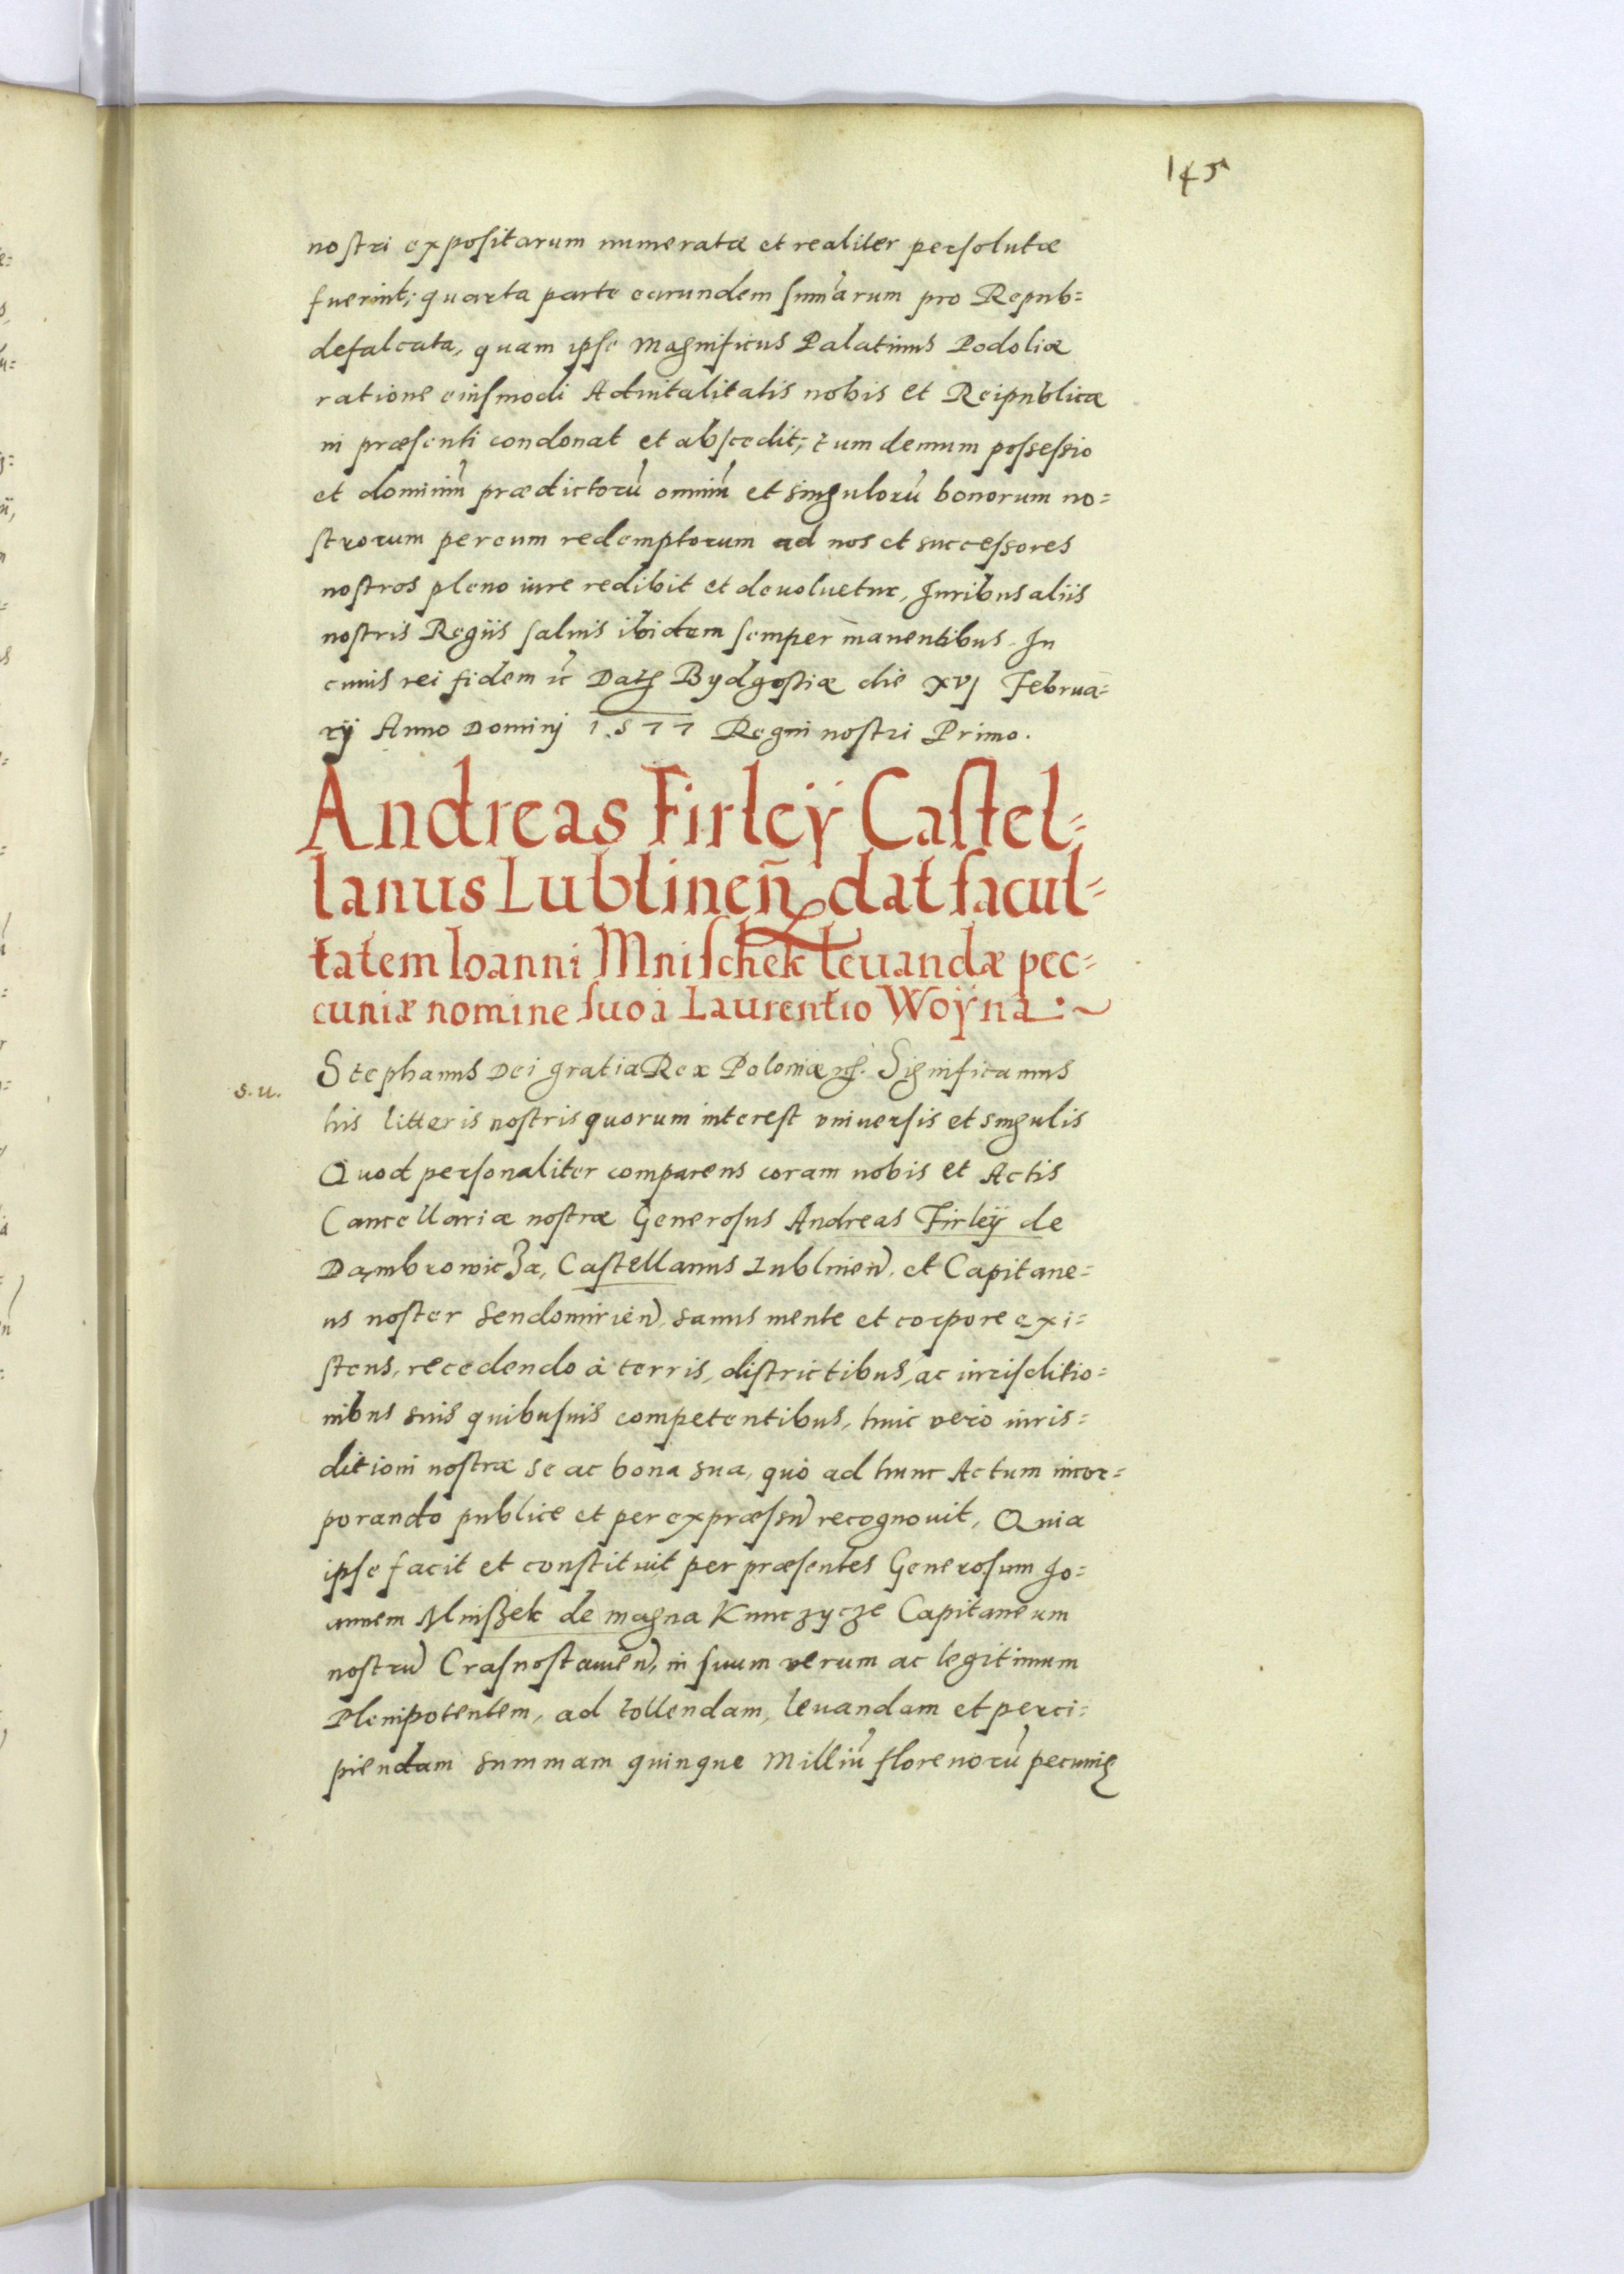 145
nostri expositarum numeratæ et realiter persolutæ
fuerint; quarta parte earundem summarum pro Repub=
defalcata, quam ipse Magnificus Palatinus Podoliæ
ratione eiusmodi Aduitalitatis nobis et Reipublicæ
in præsenti condonat et abscedit; tum demum possessio
et dominiũ prædictorũ omniũ et singulorũ bonorum no=
strorum per eum redemptorum ad nos et successores
nostros pleno iure redibit et deuoluetur, Iuribus aliis
nostris Regiis saluis ibidem semper manentibus. In
cuius rei fidem Bydgostiæ die xvj Februa=
rij Anno Dominj 1577 Regni nostri Primo.
Andreas Firleÿ Castel=
lanus Lublineñ dat facul=
tatem Ioanni Mnischek leuandæ pec=
cuniæ nomine suo à Laurentio Woÿna
s. u.
Stephanus Dei gratia Rex Poloniæ Significamus
his litteris nostris quorum interest vniuersis et singulis
Quod personaliter comparens coram nobis et Actis
Cancellariæ nostræ Generosus Andreas Firleÿ de
Dambrowicza, Castellanus Lublineñ. et Capitane=
us noster Sendomirieñ, sanus mente et corpore exi=
stens, recedendo à terris, districtibus, ac iurisditio=
nibus suis quibusuis competentibus, huic vero iuris=
ditioni nostræ se ac bona sua, quo ad hunc Actum incor=
porando publice et per expræssũ recognouit, Quia
ipse facit et constituit per præsentes Generosum Io=
annem Mniszek de magna Kunczycze Capitaneum
nostrũ Crasnostauieñ, in suum verum ac legitimum
Plenipotentem, ad tollendam, leuandam et perci=
piendam summam quinque Milliũ florenorũ pecunię